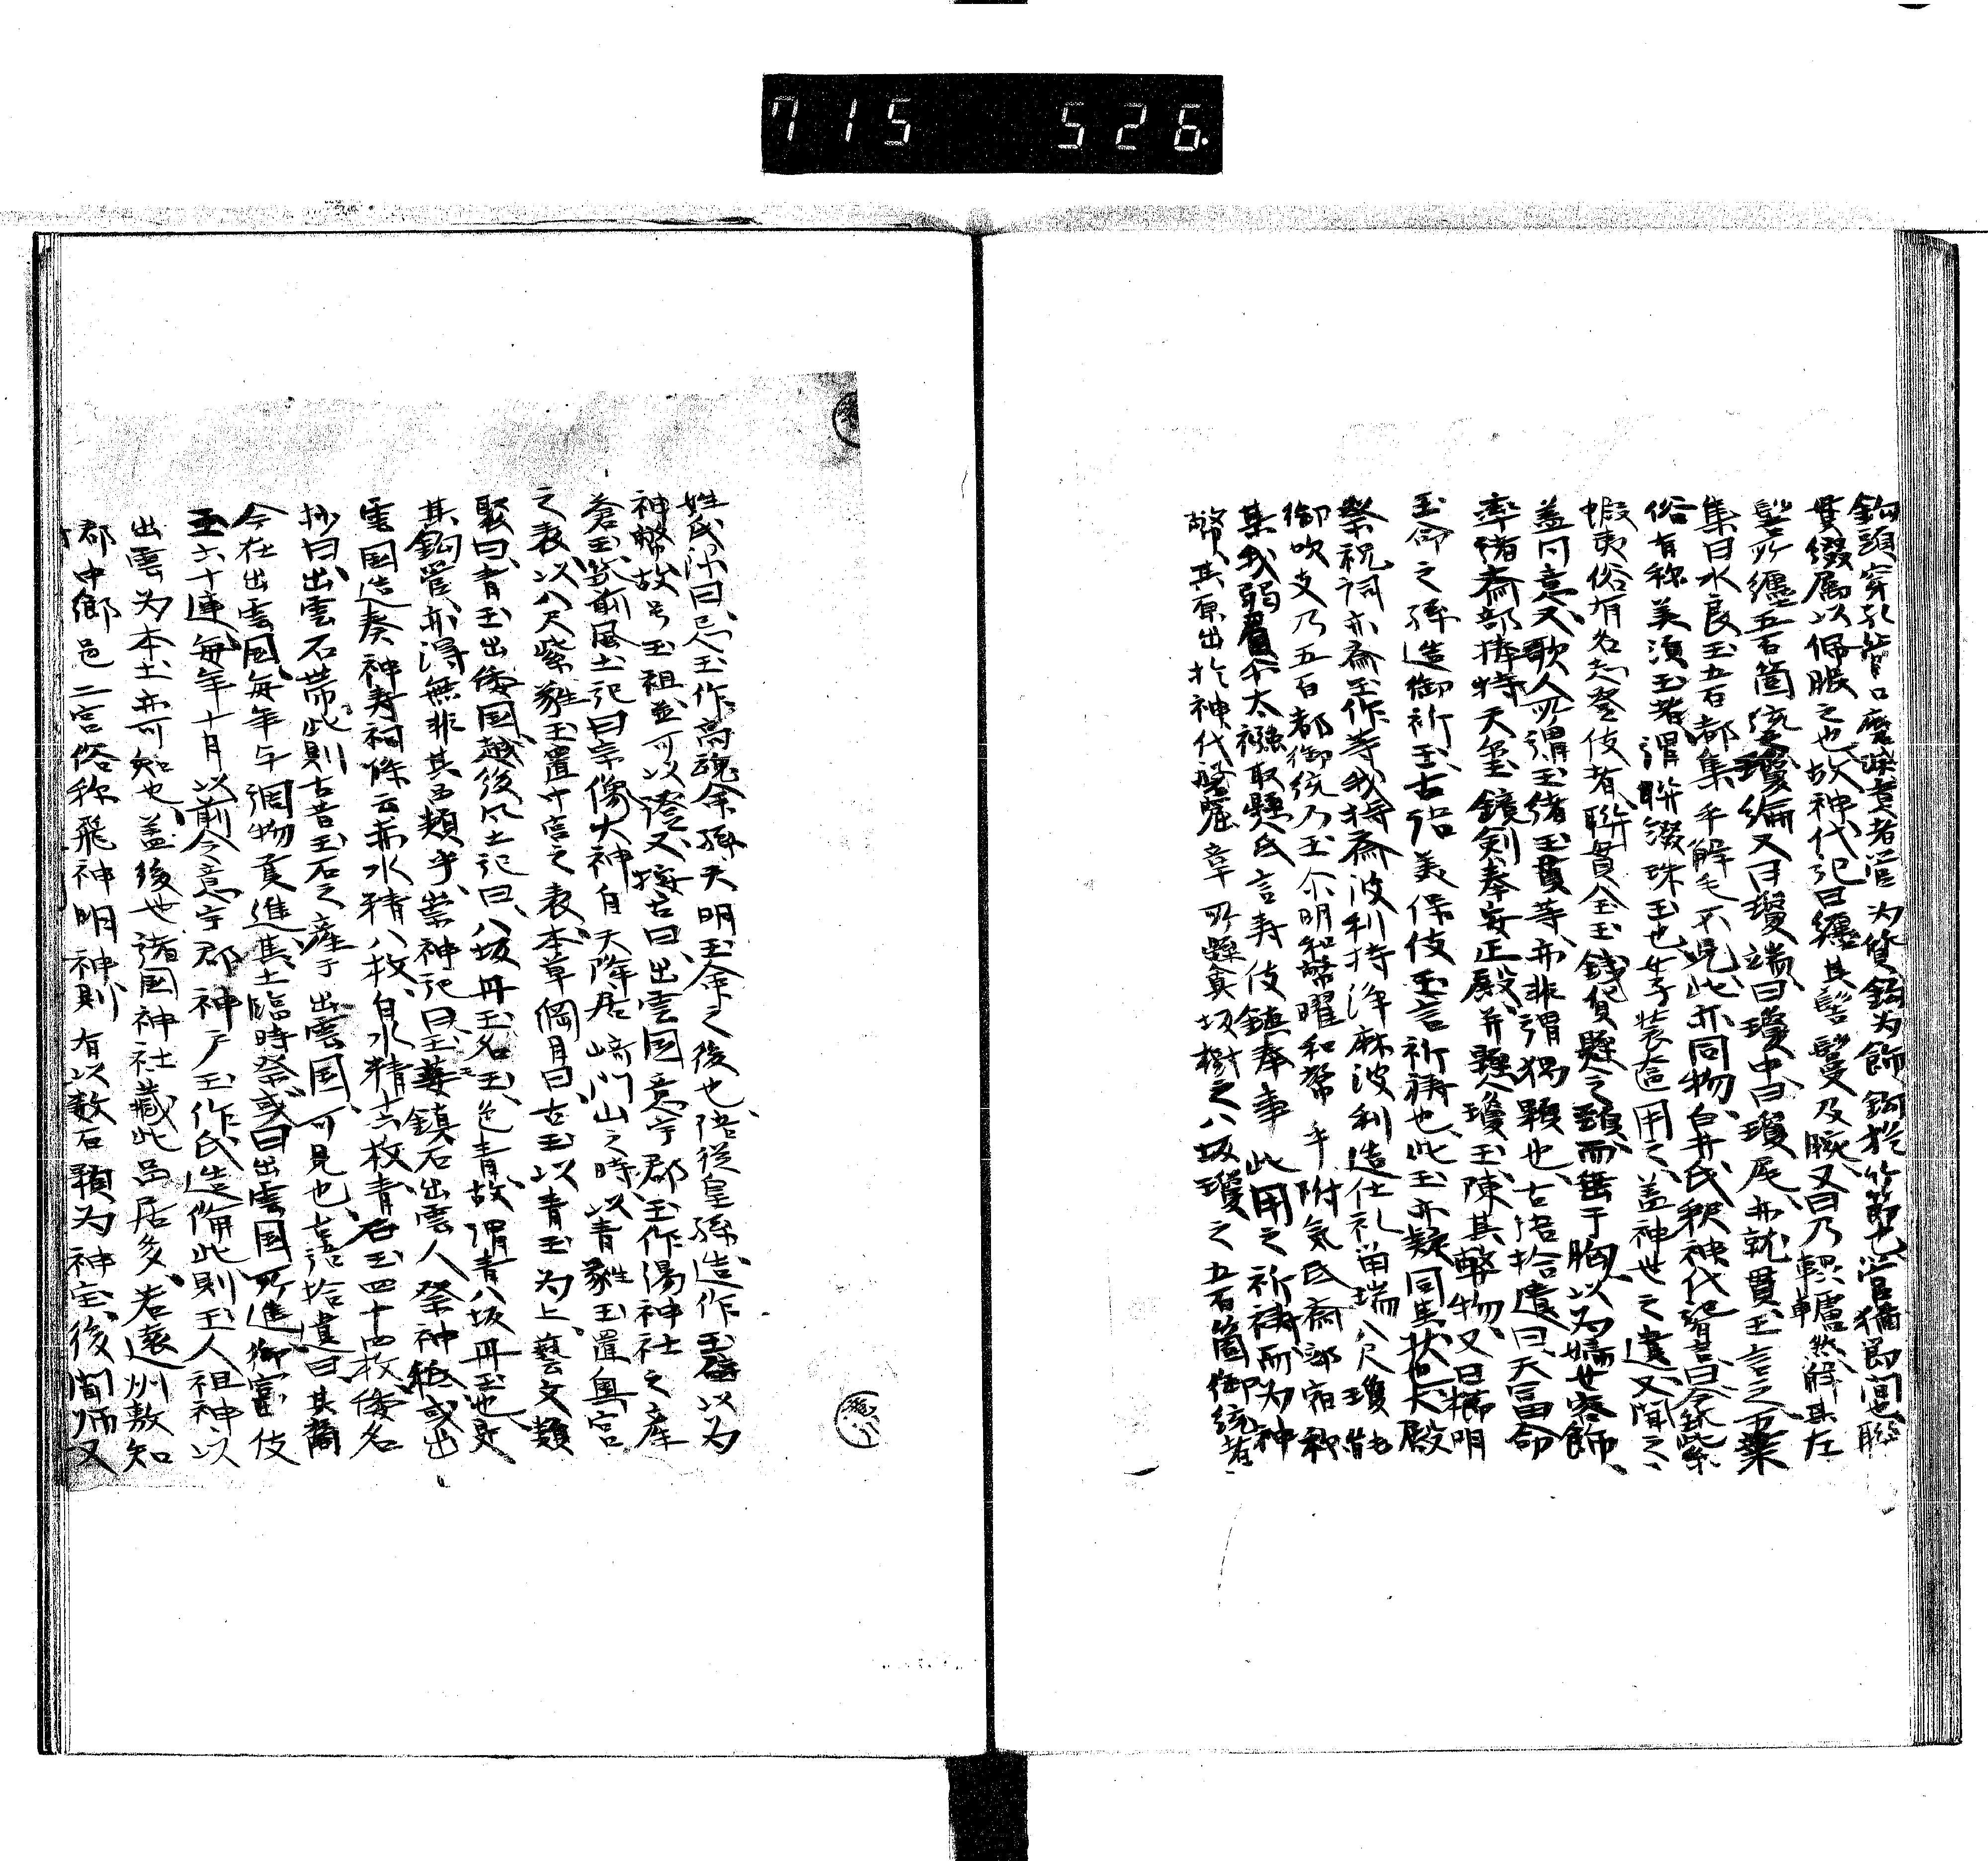 715 526.
鈎頭穿孔管口磨滅者者管为貨鈎为飾鈎於竹節也管猶節間也聯
貫綴属以佩服之也故神代記曰纏其髻鬘及腕又曰乃轆轤然解其左
髻所纏五百箇統瓊編又曰瓊端曰瓊中曰瓊尾亦就貫玉言之万葉
集曰水良玉五百都集乎解毛不見此亦同物白井氏釈神代記
俗有称美須玉者謂聨綴珠玉也女子装
用之蓋神世之遺又聞之
蝦夷俗有名志登伎者聨貫金玉銭貨懸之頸而垂于胸以为婦女容飾
蓋同意又歌人所謂玉緒玉貫等亦非謂独顆也古語拾遺曰天冨命
率諸斎部捧持天璽鏡剣奉安正殿并懸瓊玉陳其幣物又曰櫛明
玉命之孫造御祈玉古語美保伎玉言祈祷也此玉亦疑同其状大殿
祭祝詞亦斎玉作等我持斎波利持浄麻波利造仕礼留瑞八尺瓊能
御吹支乃五百都御統乃玉尓明和幣曜和幣乎附氐斎部宿祢
某我弱肩尓太襁取懸氐言寿伎鎮奉事此用之祈祷而为神
幣其原出於神代磐窟章所懸真坂樹之八坂瓊之五百箇御統者
姓氏録曰忌玉作高魂命孫天明玉命之後也陪従皇孫造作玉璧以为
神幣故号玉祖並可以澄又按古曰出雲国意宇郡玉作湯神社之産
蒼玉筑前風土記曰宗像大神自天降居崎門山之時以青蕤玉置奥宮
之表以八尺紫蕤玉置中宮之表本草綱目曰古玉以青玉为上藝文類
聚曰青玉出倭国越後風土記曰八坂丹玉名玉色青故謂青八坂丹玉也是
其鈎管亦得無非其玉類乎崇神記曰玉萋鎮石出雲人祭神祗或出
雲国造奏神寿祠條云赤水精八枚白水精十六枚青石玉四十四枚倭名
抄曰出雲石帯此則古昔玉石之産于出雲国可見也古語拾遺曰其裔
今在出雲国毎年与調物貢進其土臨時祭或曰出雲国所進御富伎
玉六十連毎年十月以前令意宇郡神戸玉作氏造備此則玉人祖神以
出雲为本土亦可知也蓋後世諸国神社藏此品居多若遠州敷知
郡中郷邑二宮俗称飛神明神則有以数石顆为神宝後聞師又